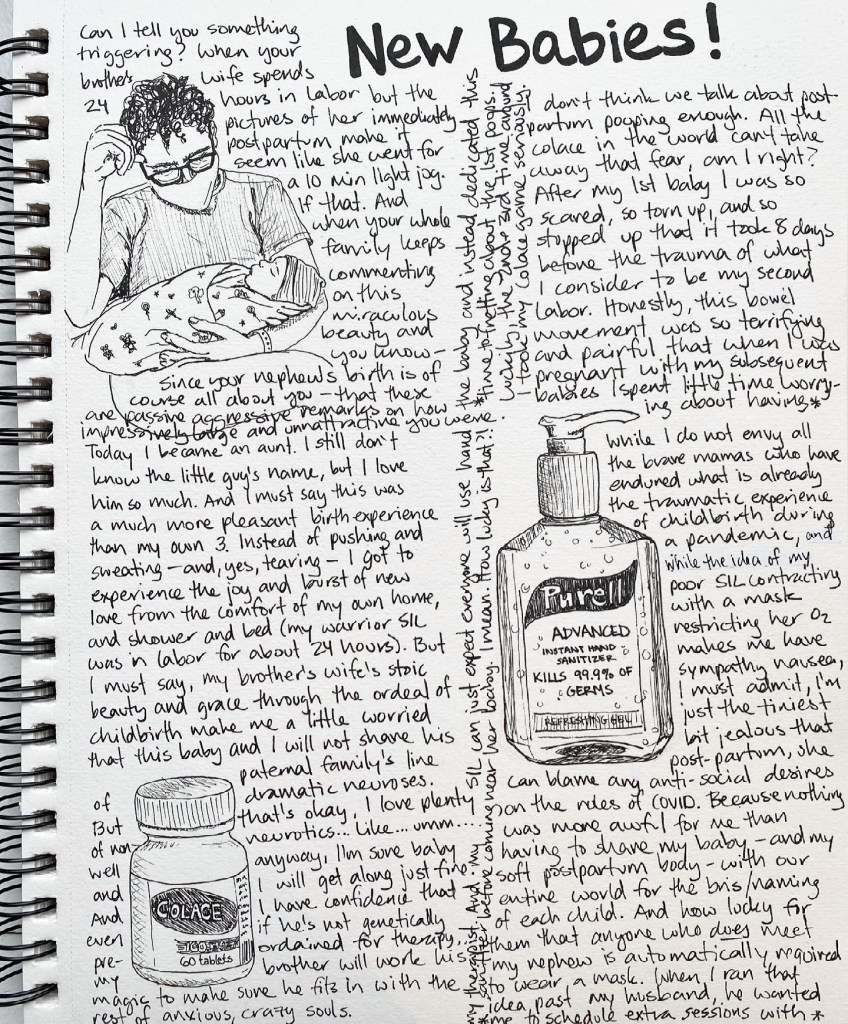 New Babies!
Can I tell you something
triggering? When your
brother's wife spends
24 hours in labor but the
pictures of her immediately
postpartum make it
seem like she went for
a 10 min light jog.
If that. And
when your whole
family keeps
commenting
on this
miraculous
beauty and
you know—
since your nephew's birth is of
course all about you—that these
are passive aggressive remarks on how
impressively large and unnattractive you were.
Today I became an aunt. I still don't
know the little guy's name, but I love
him so much. And I must say this was
a much more pleasant birth experience
than my own 3. Instead of pushing and
sweating—and, yes, tearing—I got to
experience the joy and burst of new
love from the comfort of my own home,
and shower and bed (my warrior SIL
was in labor for about 24 hours). But
I must say, my brother's wife's stoic
beauty and grace through the ordeal of
childbirth make me a little worried
that this baby and I will not share his
paternal family's line
of dramatic neuroses.
But that's okay, I love plenty
of non-neurotics... Like... umm....
well anyway, I'm sure baby
and I will get along just fine.
And I have confidence that
even if he's not genetically
pre-ordained for therapy...
my brother will work his
magic to make sure he fits in with the
rest of anxious, crazy souls.
I don't think we talk about post-
partum pooping enough. All the
colace in the world can't take
away that fear, am I right?
After my 1st baby I was so
scared, so torn up, and so
stopped up that it took 8 days
before the trauma of what
I consider to be my second
labor. Honestly, this bowel
movement was so terrifying
and painful that when I was
pregnant with my subsequent
babies I spent little time worry-
ing about having*
*the baby and instead dedicated this
time to fretting about the 1st poops.
Luckily, the 2nd & 3rd time around
I took my colace game seriously.
While I do not envy all
the brave mamas who have
endured what is already
the traumatic experience
of childbirth during
a pandemic, and
while the idea of my
poor SIL contracting
with a mask
restricting her O2
makes me have
sympathy nausea,
I must admit, I'm
just the tiniest
bit jealous that
post-partum, she
can blame any anti-social desires
on the rules of COVID. Because nothing
was more awful for me than
having to share my baby—and my
soft postpartum body—with our
entire world for the bris/naming
of each child. And how lucky for
them that anyone who does meet
my nephew is automatically required
to wear a mask. When I ran that
idea past my husband, he wanted
me to schedule extra sessions with*
*my therapist. And my SIL can just expect everyone will use hand
sanitizer before coming near her baby. I mean. How lucky is that?!
COLACE
100
60 tablets
Purell
ADVANCED
INSTANT HAND
SANITIZER
KILLS 99.9% OF
GERMS
REFRESHING GEL